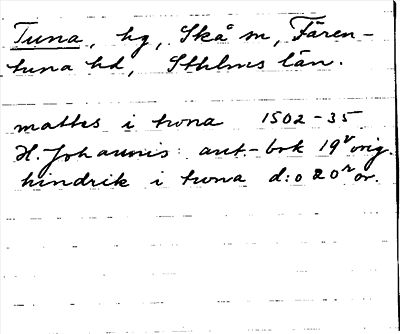 Tuna, hg, Skå sn, Fären-
tuna hd, Sthlms län.
mattes i twna 1502-35
H. Johannis: ant.-bok 19v orig.
hindrik i twna d:o 20r or.